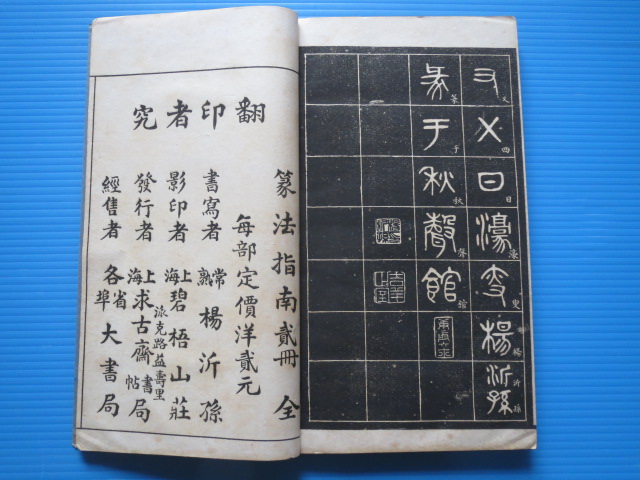 又四日濠叟楊沂孫
篆于秋聲館
又四日濠叟楊沂孫
篆于秋聲館
翻印者究
篆法指南貳冊全
每部定價洋貳元
書寫者 常熟楊沂孫
影印者 上海碧梧山莊
派克路益壽里
發行者 上海求古齋書帖局
經售者 各省埠大書局